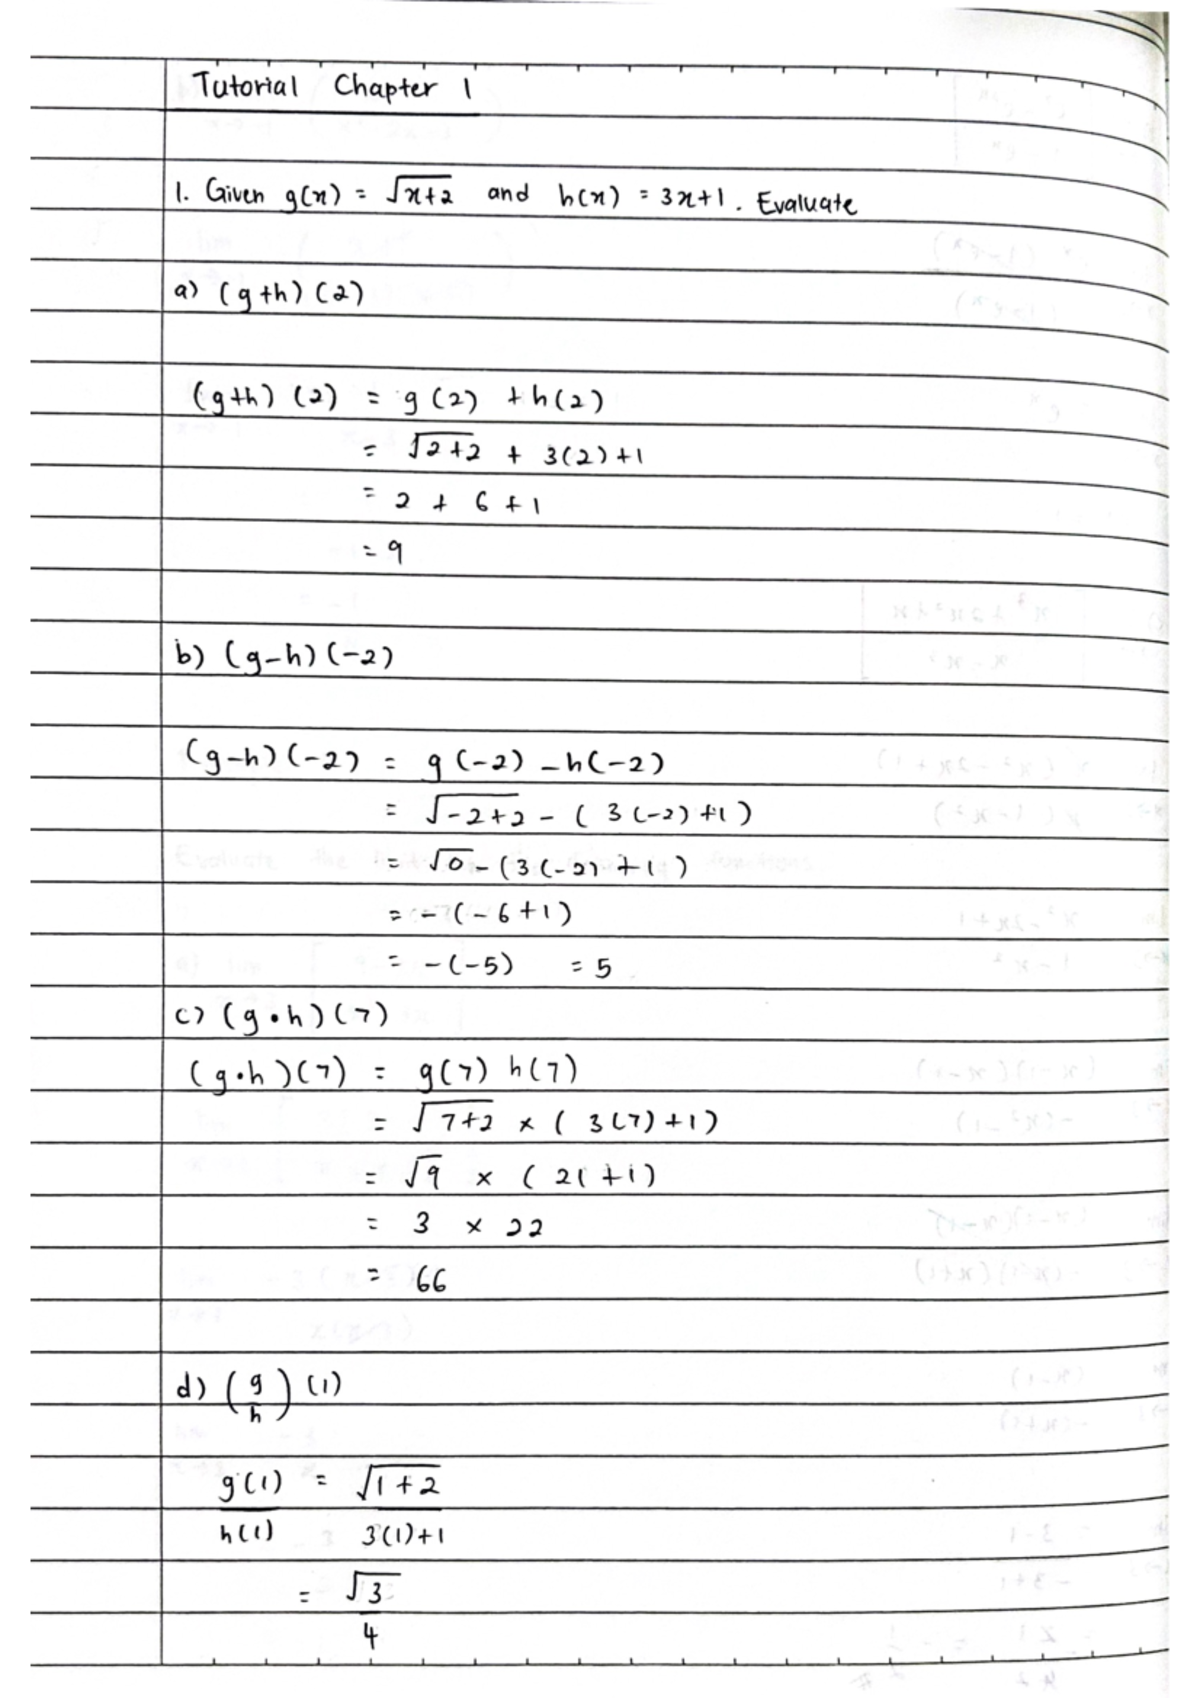 Tutorial Chapter 1
1. Given g(x) = √x+2 and h(x) = 3x+1. Evaluate
a) (g+h)(2)
(g+h)(2) = g(2) + h(2)
= √2+2 + 3(2)+1
= 2 + 6 + 1
= 9
b) (g-h)(-2)
(g-h)(-2) = g(-2) - h(-2)
= √-2+2 - (3(-2)+1)
= √0 - (3(-2)+1)
= -(-6+1)
= -(-5) = 5
c) (g•h)(7)
(g•h)(7) = g(7) h(7)
= √7+2 × (3(7)+1)
= √9 × (21+1)
= 3 × 22
= 66
d) (g/h)(1)
g(1) = √1+2
h(1) 3(1)+1
= √3
4